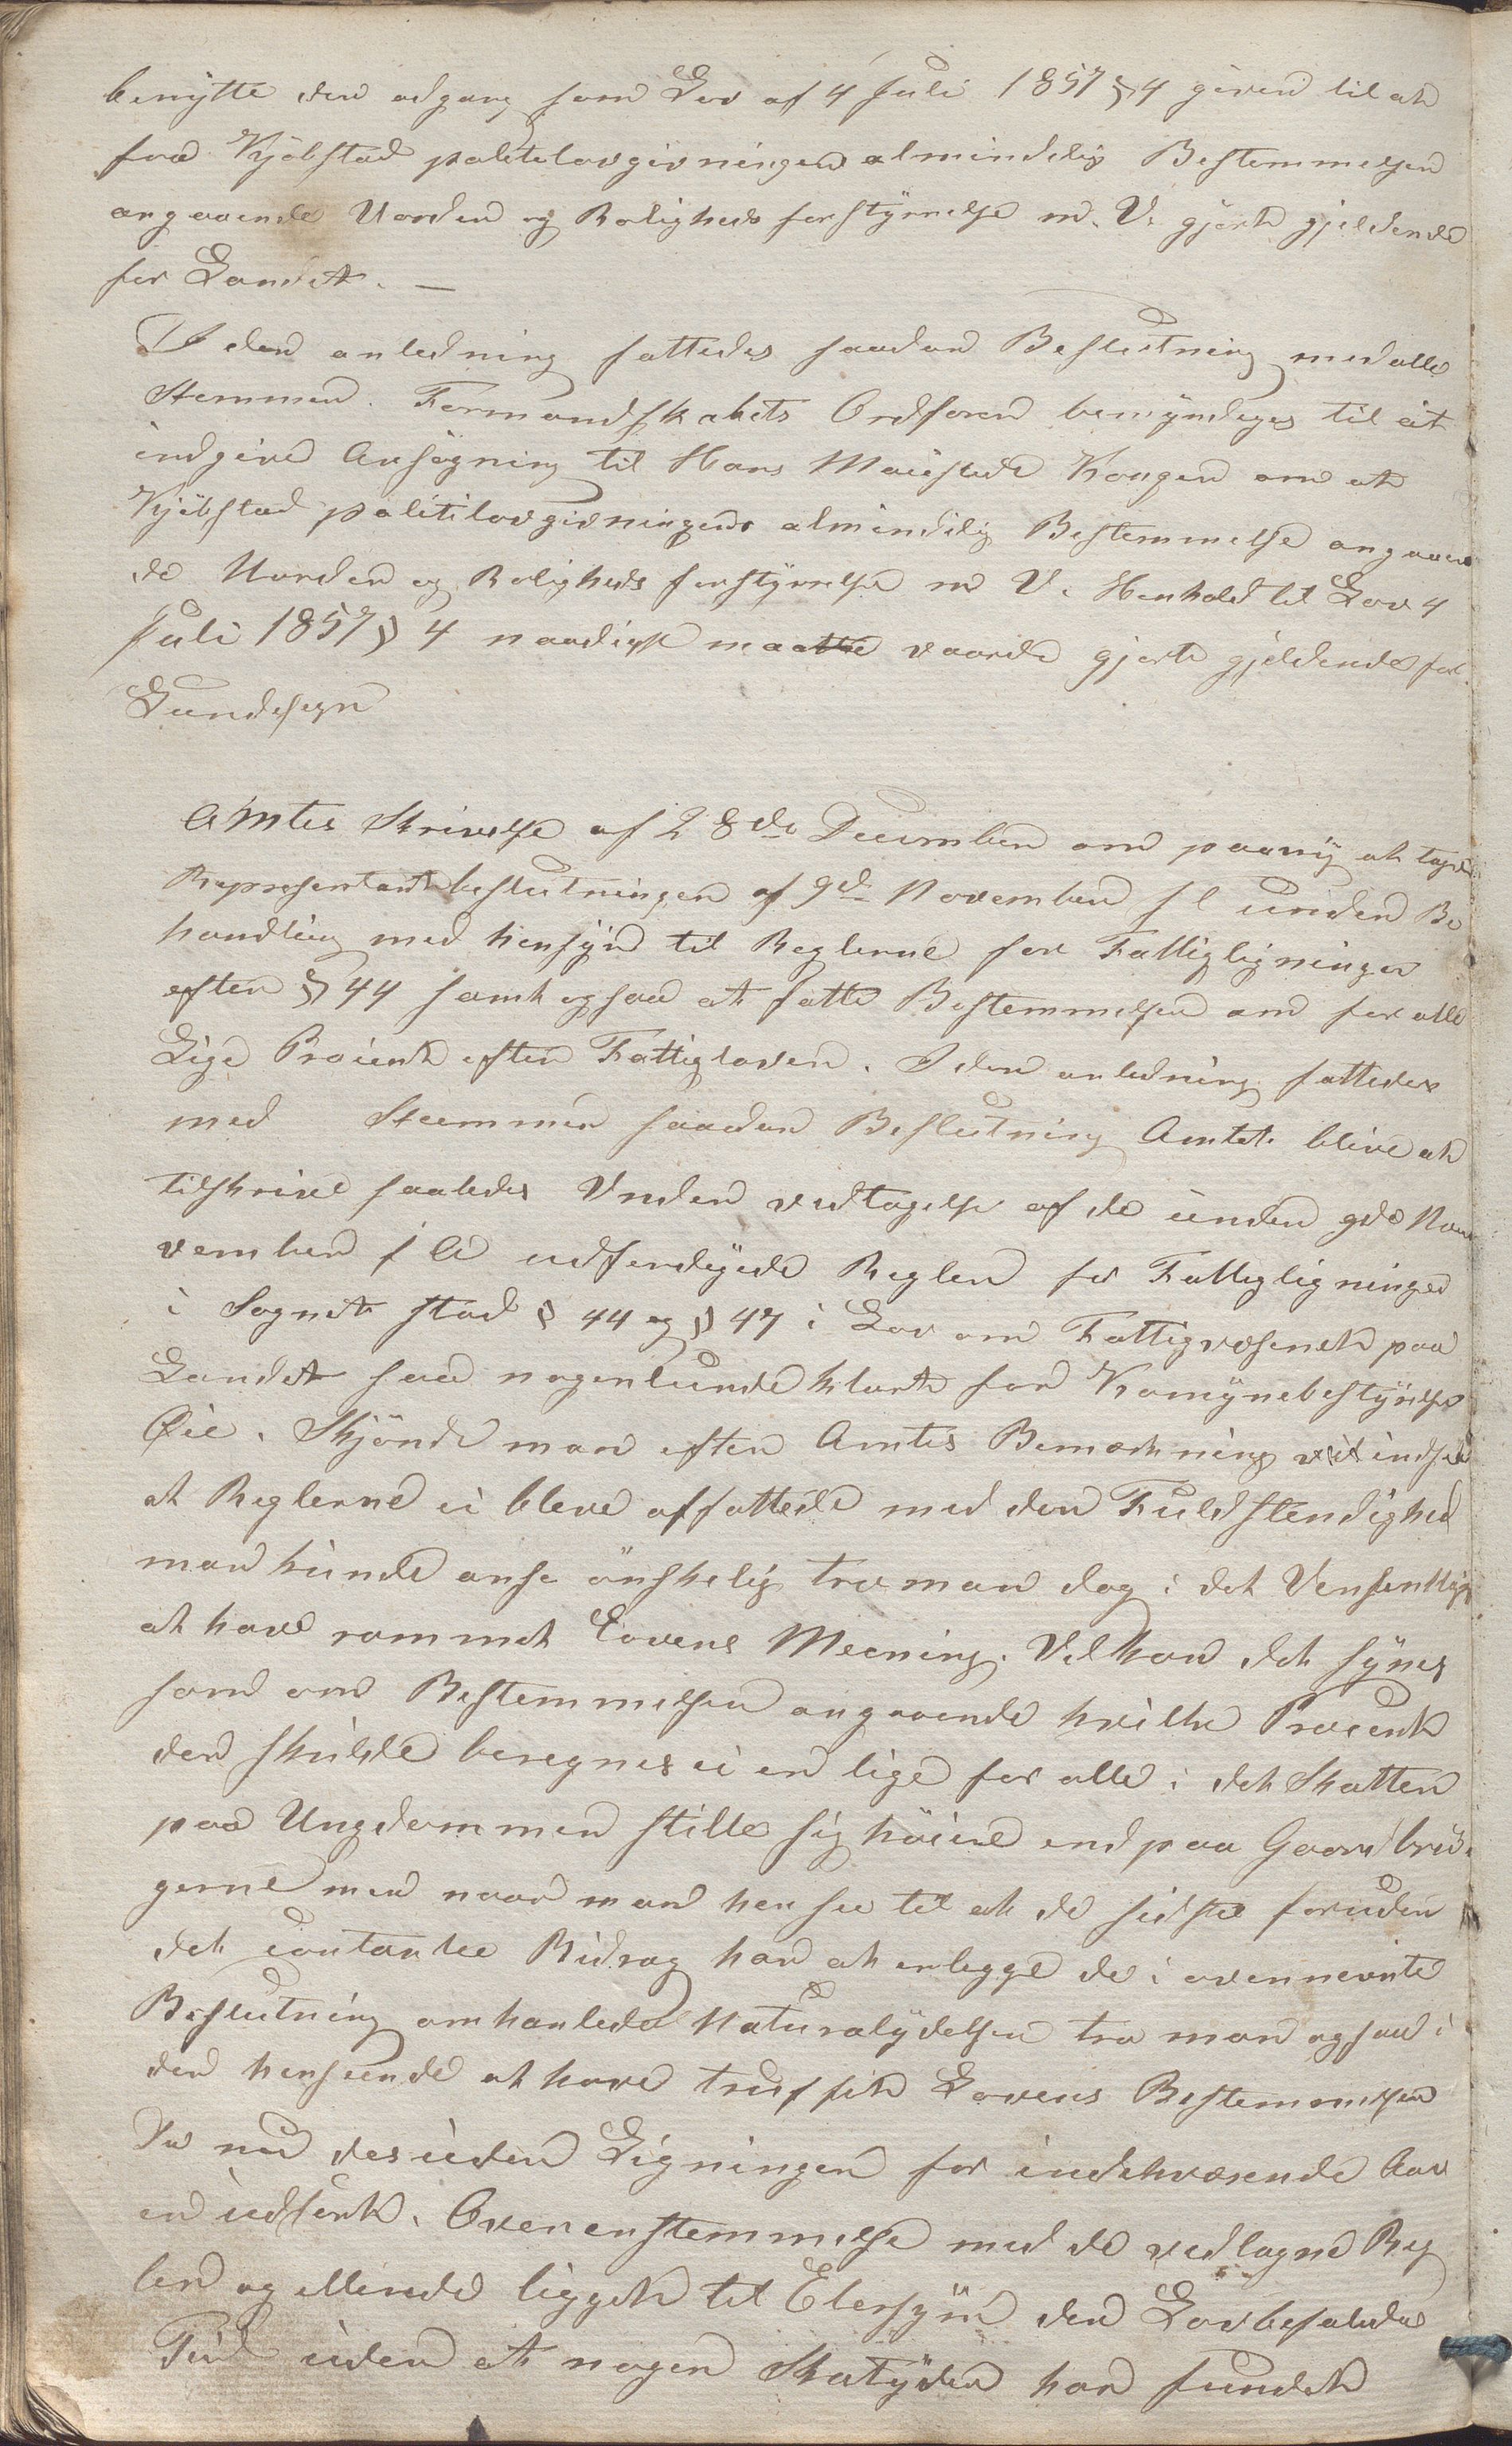 benytte den adgang som Lov af 4 Juli 1857 § 4 giver til at
faa Kjöbstad politilovgivningens almindelig Bestemmelser
angaaende Uorden og Roligheds forstyrrelse m. V. gjort gjeldende
for Landet. —
I den anledning fattedes saadan Beslutning med alle
Stemmer. Formandskabets Ordförer bemyndiges til at
indgive Ansögning til Hans Maiestæt Kongen om at
Kjöbstad politilovgivningens almindelig Bestemmelse angaaen
de Uorden og Roligheds forstyrrelse m V. Henhold til Lov 4
Juli 1857 § 4 naadigst maatte vaarde gjort gjeldende for
Lundesogn
Amtes Skrivelse af 28de December om paany at tage
Representantbeslutningen af 9de November f l under Be
handling med hensyn til Reglerne for Fattigligningen
efter § 44 samt ogsaa at fatte Bestemmelser om for alle
Lige Procent efter Fattigloven. I den anledning fattedes
med Stemmer saadan Beslutning Amtet blive at
tilskrive saaledes Under vedtagelse af de under 9de No
vember f A udferdigede Regler for Fattigligningen
i Sognet stod § 44 og § 47 i Lov om Fattigvæsenet paa
Landet saa nogenlunde klart for Komynebestyrelse
Øie. Skjönt man efter Amtes Bemerkning vil indse
at Reglerne ei bleve affattede med den Fuldstendighed
man kunde anse önskelig tror man dog i det Vensentlige
at have rammet Lovens Meening. Vel kan det synes
som om Bestemmelsen angaaende hvilke Procent
der skulde beregnes ei er lige for alle i det Skatten
paa Ungdommen stille sig höiere end paa Gaardbru
gerne men naar man hensee til at de sidste foruden
det contante Bidrag har at erlegge de i ovennevnte
Beslutning omhanlede Naturalydelser tro man ogsaa i
den henseende at have truffet Lovens Bestemmelser
Da nu desuden Ligningen for indehværende Aar
er udfert. Overenstemmelse med de vedtagne Reg
ler og allerede ligget til Eftersyn den Lovbefalede
Tid uden at nogen Skatyder har fundet